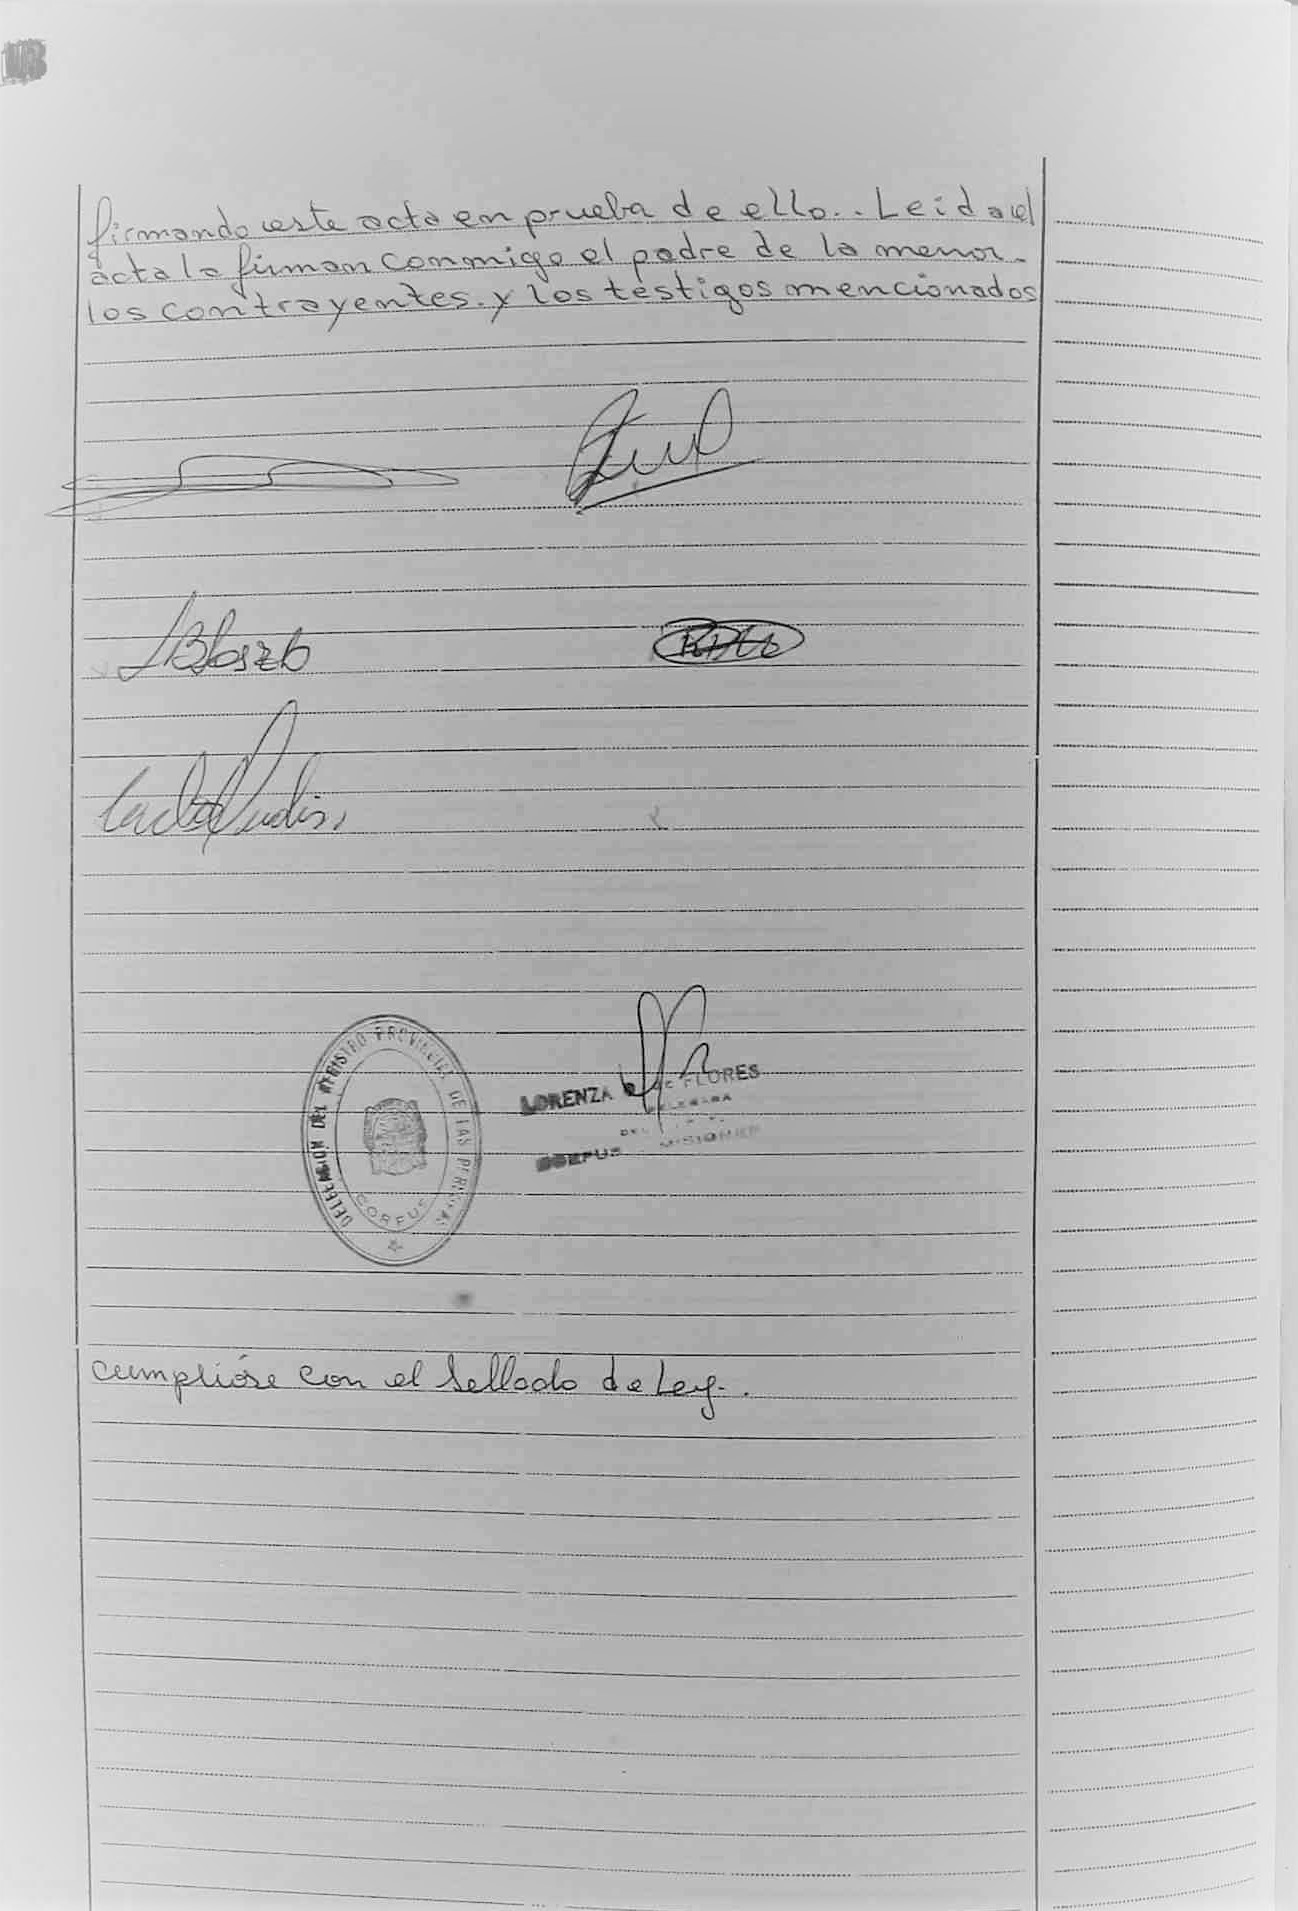 firmando este acta en prueba de ello.. Leida el
acta la firman conmigo el padre de la menor.
los contrayentes. y los testigos mencionados
DELEGACION DEL REGISTRO PROVINCIAL DE LAS PERSONAS
CORPUS
LORENZA DE FLORES
DELEGADA
CORPUS MISIONES
cumplióse con el Sellado de Ley.